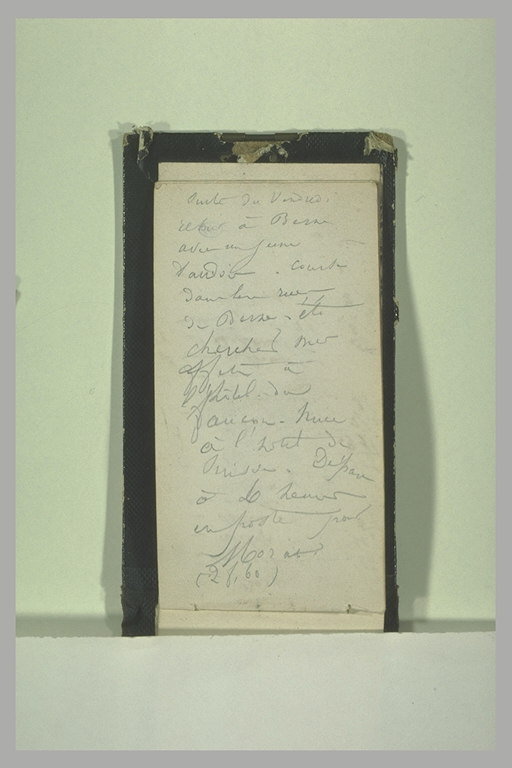 Suite du Vendredi
retour à Berne
avec un jeune
Vaudois - course
dans les rues
de Berne - été
chercher mes
effets à
l'hôtel du
faucon -
à l'hotel de
Suisse. Départ
à heures
en poste pour
Morat.
(26,60)